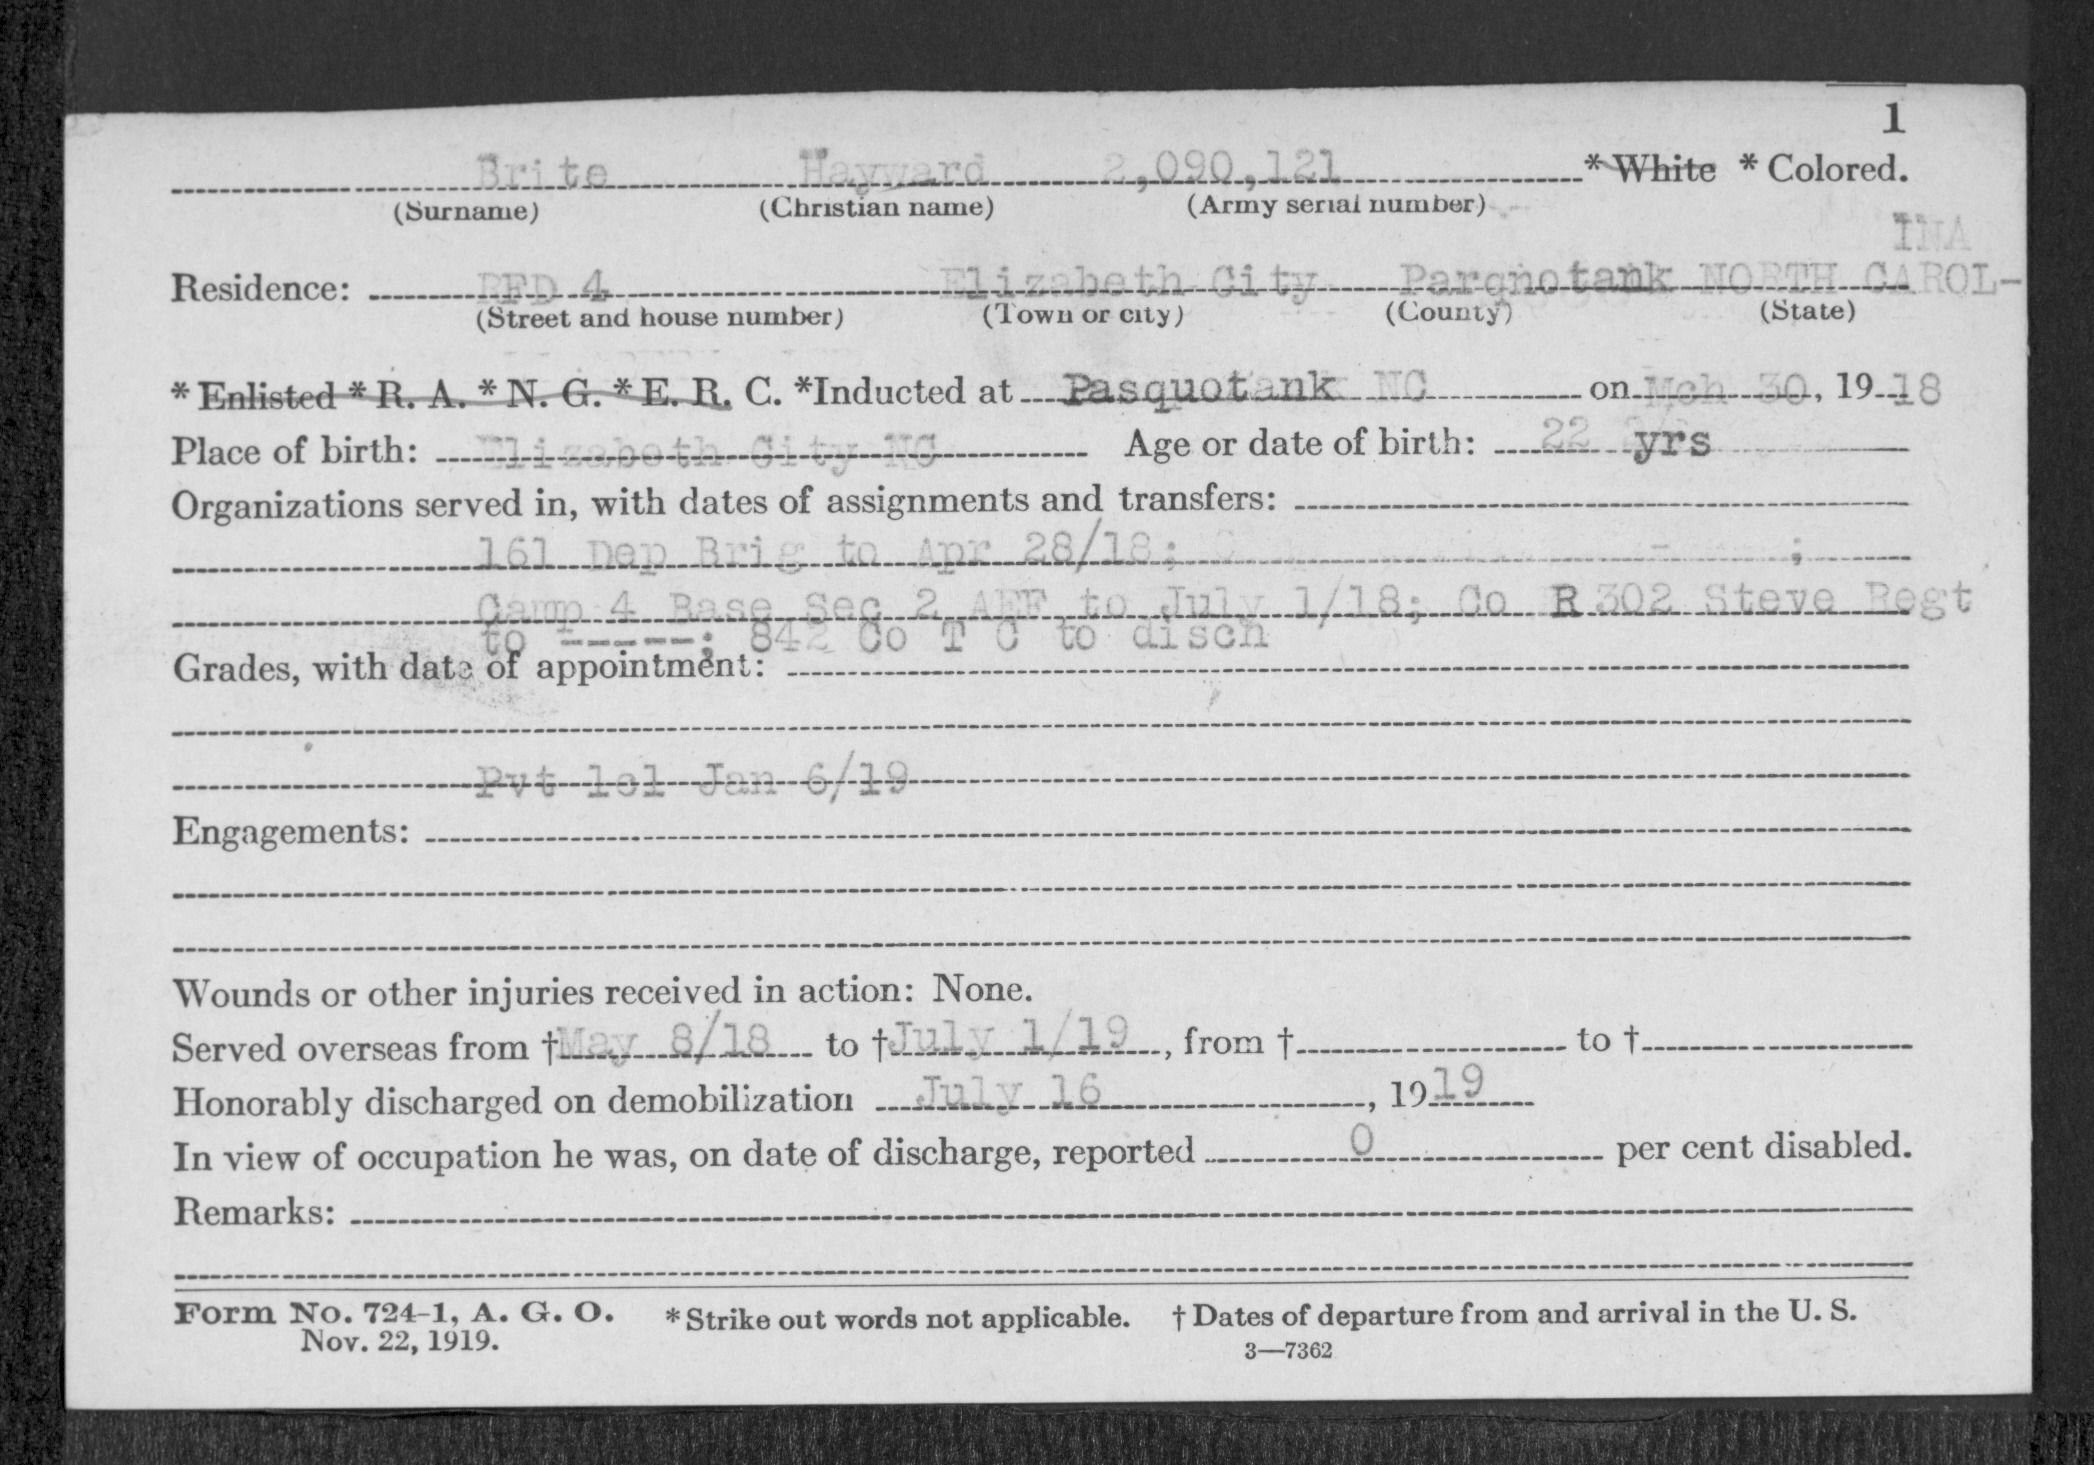 1
Brite Hayward 2,090,121 *White * Colored.
(Surname) (Christian name) (Army serial number)
INA
Residence: RFD 4 Elizabeth City Parqnotank NORTH CAROL-
(Street and house number) (Town or city) (County) (State)
* Enlisted * R. A. * N. G. * E. R. C. *Inducted at Pasquotank NC on Mch 30, 19 18
Place of birth: Elizabeth City NC Age or date of birth: 22 yrs
Organizations served in, with dates of assignments and transfers:
161 Dep Brig to Apr 28/18; ;
Camp 4 Base Sec 2 AEF to July 1/18; Co R 302 Steve Regt
to -----; 842 Co T C to disch
Grades, with date of appointment:
Pvt 1cl Jan 6/19
Engagements:
Wounds or other injuries received in action: None.
Served overseas from † May 8/18 to † July 1/19, from † to †
Honorably discharged on demobilization July 16, 19 19
In view of occupation he was, on date of discharge, reported 0 per cent disabled.
Remarks:
Form No. 724-1, A. G. O. * Strike out words not applicable. † Dates of departure from and arrival in the U. S.
Nov. 22, 1919. 3—7362